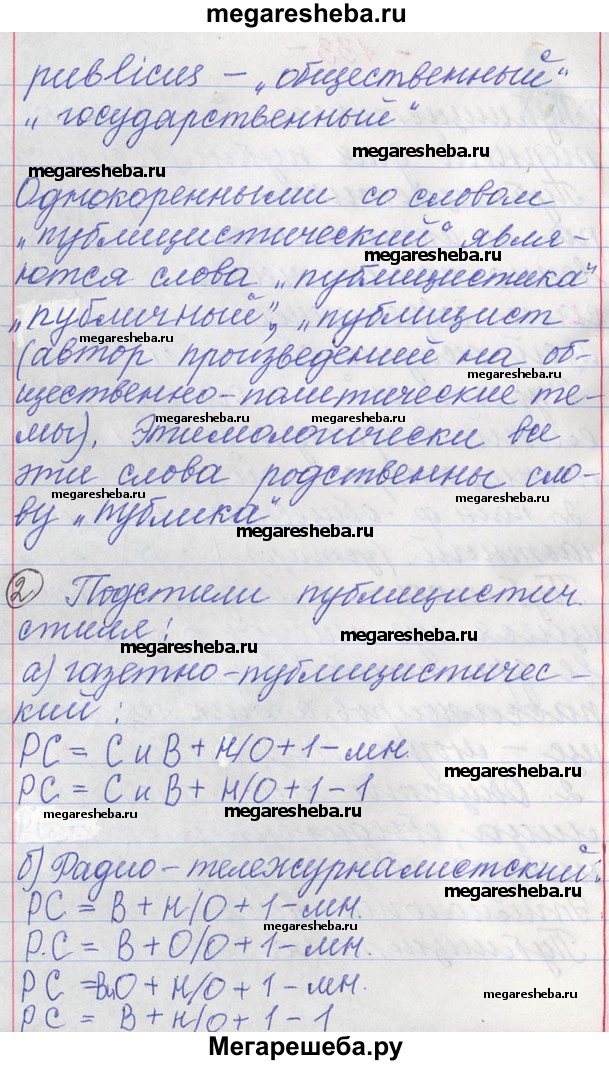 megaresheba.ru
publicus – „общественный“
„ государственный“
megaresheba.ru
megaresheba.ru
Однокоренными со словом
„публицистический“ явля-
megaresheba.ru
ются слова „публицистика“
„публичный“, „публицист
megaresheba.ru
(автор произведений на об-
megaresheba.ru
щественно-политические те-
megaresheba.ru megaresheba.ru
мы). Этимологически все
эти слова родственны сло-
megaresheba.ru megaresheba.ru
ву „публика“
megaresheba.ru
2 Подстили публицистич.
стиля:
megaresheba.ru megaresheba.ru
а) газетно-публицистичес-
кий:
РС = С и В + Н/О + 1 – мн.
megaresheba.ru
РС = С и В + Н/О + 1 – 1
megaresheba.ru
б) Радио-тележурналистский:
megaresheba.ru
РС = В + Н/О + 1 – мн.
megaresheba.ru
Р.С = В + О/О + 1 – мн.
РС = В и О + Н/О + 1 – мн.
megaresheba.ru
РС = В + Н/О + 1 – 1
Мегарешеба.ру